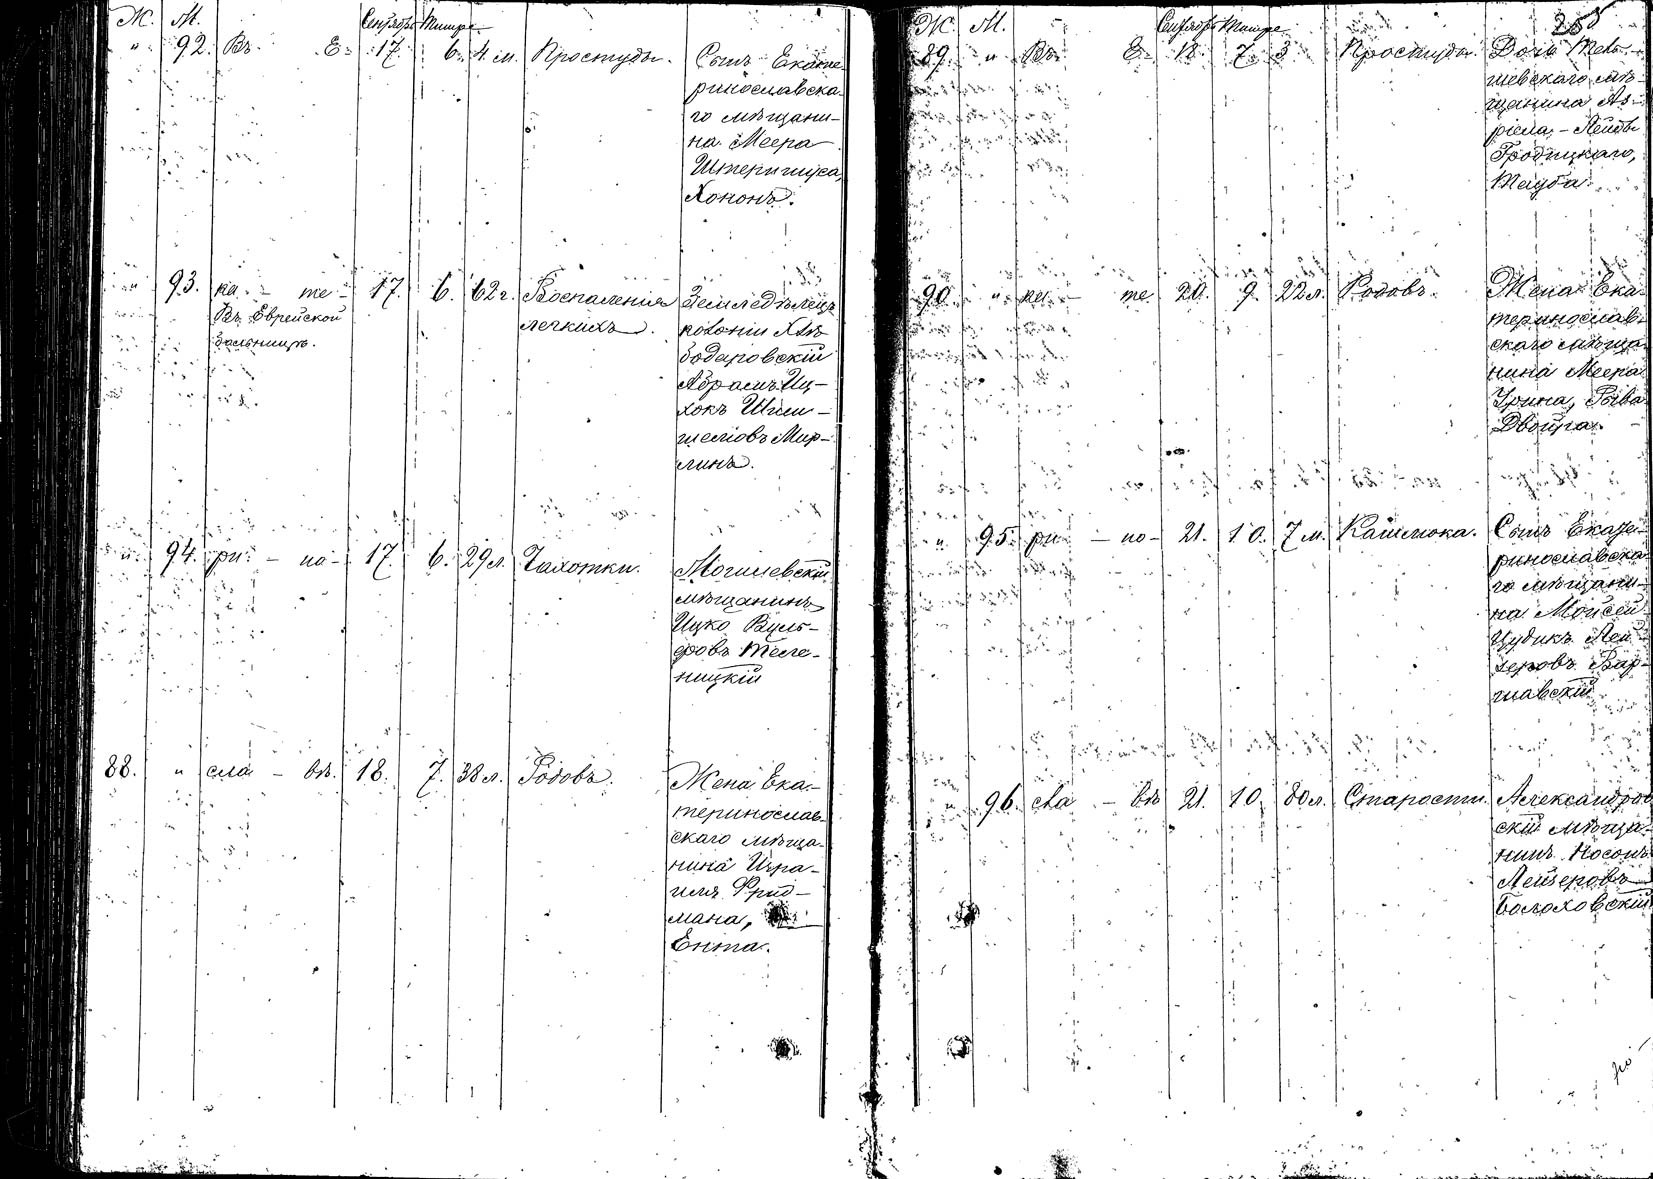 Ж. М. Сентябрь Тишре
" 92. Въ Е- 17. 6. 4 м. Простуды. Сынъ Екате-
ринославска-
го мѣщани-
на Меера
Штернгица,
Хононъ.
" 93. ка - те- 17. 6. 62 г. Воспаленія Земледѣлецъ
Въ Еврейской легкихъ. колоніи Хлѣ-
больницѣ. бодаровскій
Абрамъ Иц-
хокъ
Мир-
линъ.
" 94. ри - но- 17. 6. 29 л. Чахотки. Могилевскій
мѣщанинъ
Ицко Вуль-
фовъ Теле-
ницкій
88. " сла - вѣ. 18. 7. 38 л. Родовъ. Жена Ека-
теринослав-
скаго мѣща-
нина Изра-
иля Фрид-
мана,
Ента.
Ж. М. Сентябрь Тишре
89. " Въ Е- 18. 7. 3 Простуды Дочь
шевскаго мѣ-
щанина Аз-
ріела-Лейбы
Гродицкаго,
Тауба.
90. " ка - те 20. 9. 22 л. Родовъ. Жена Ека-
теринослав-
скаго мѣща-
нина Меера
Урина, Рыва
Двойра.
" 95. ри - но- 21. 10. 7 м. Кашлюка. Сынъ Екате-
ринославска-
го мѣщани-
на Мойсей
Цудикъ Лей-
зеровъ Вар-
шавскій.
" 96. сла - вѣ 21. 10. 80 л. Старости. Александров-
скій мѣща-
нинъ Носонъ
Лейзеровъ
Болоховскій